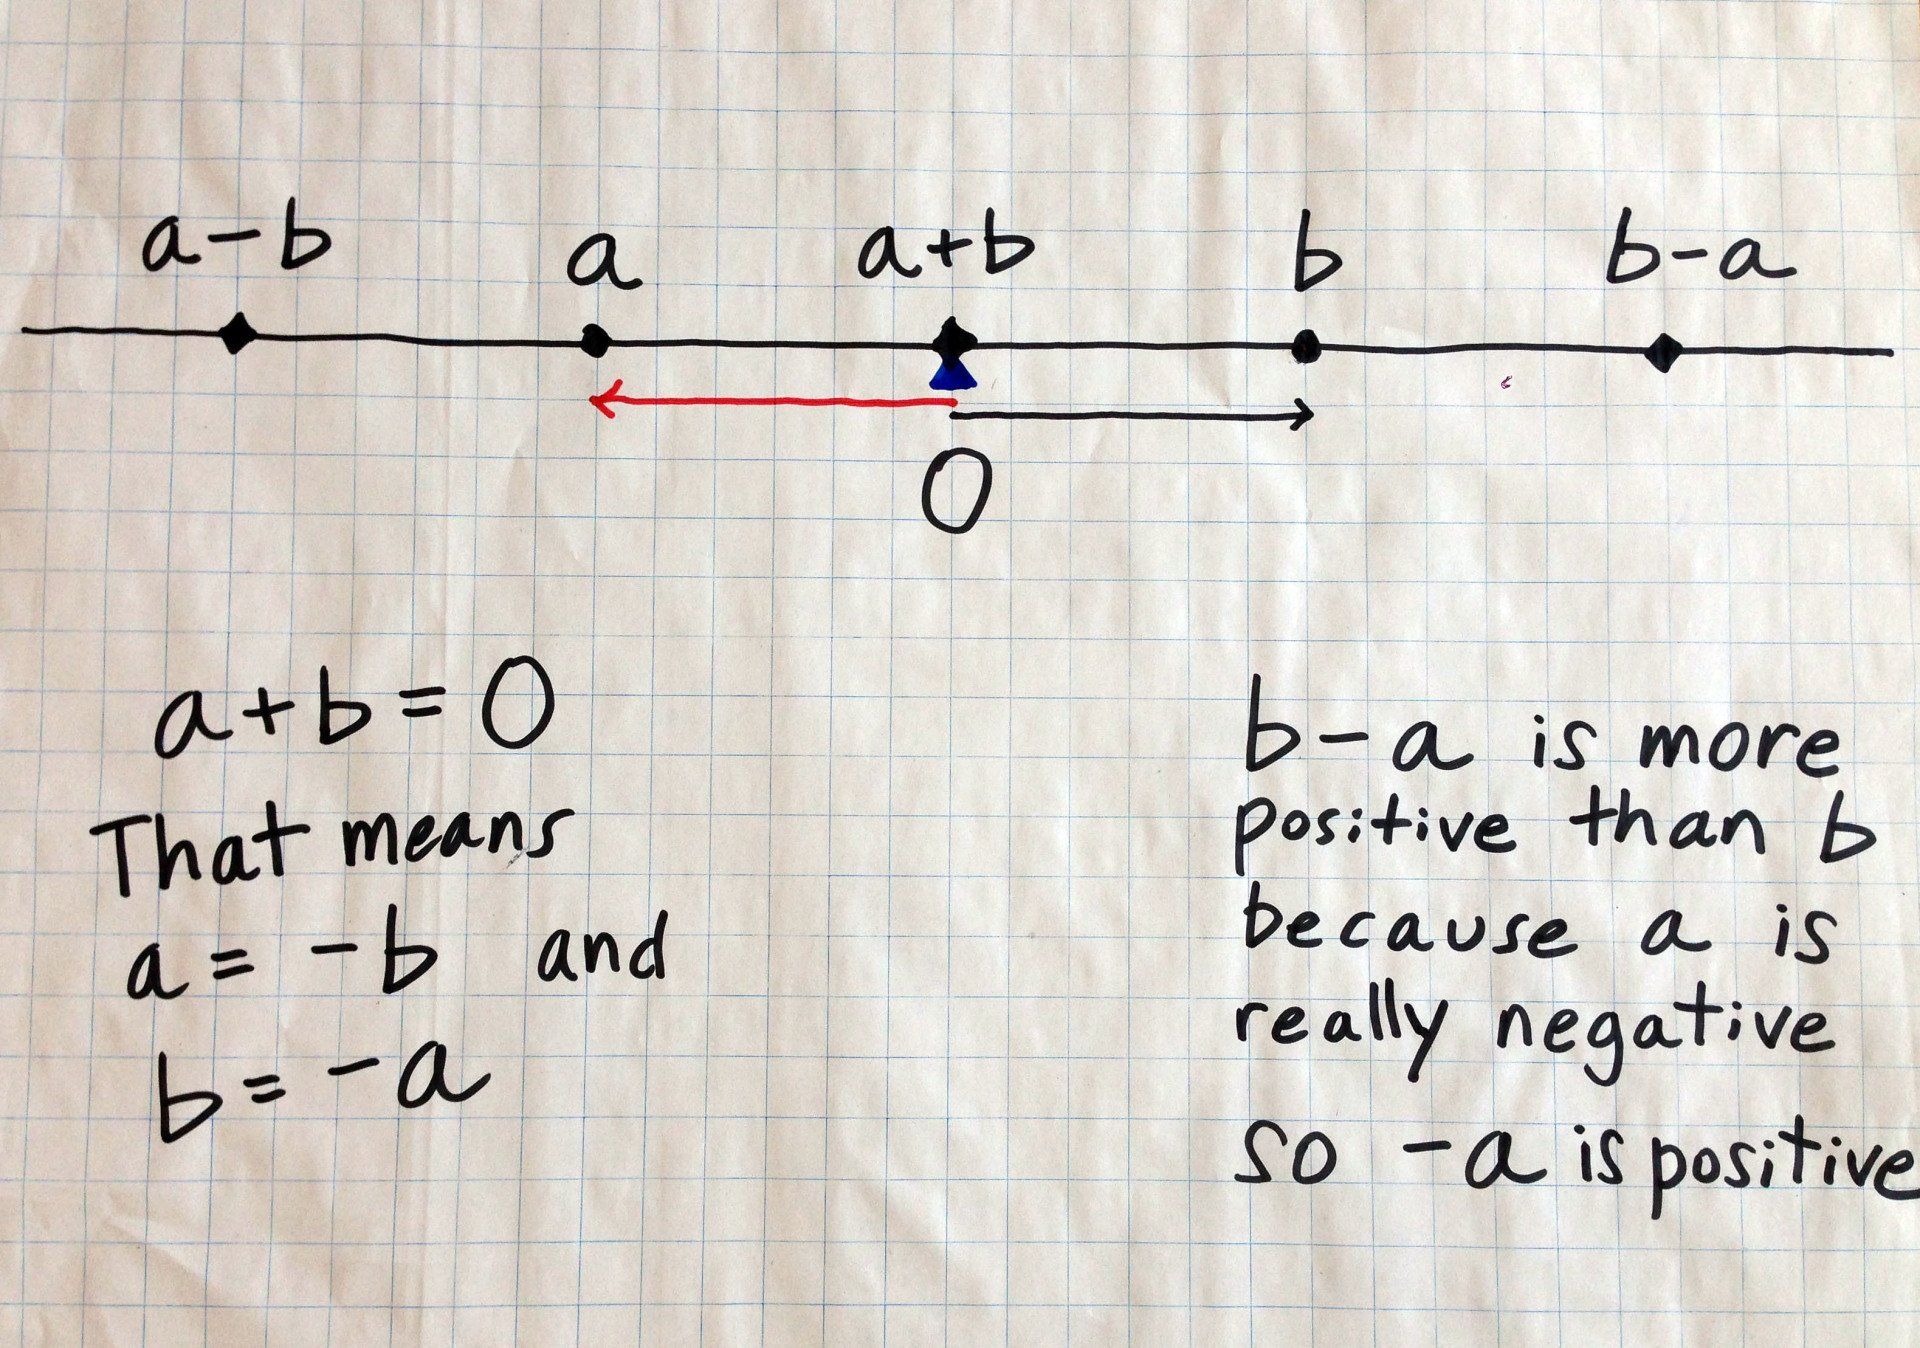 a-b a a+b b b-a
0
a+b=0
That means
a = -b and
b = -a
b-a is more
positive than b
because a is
really negative
so -a is positive